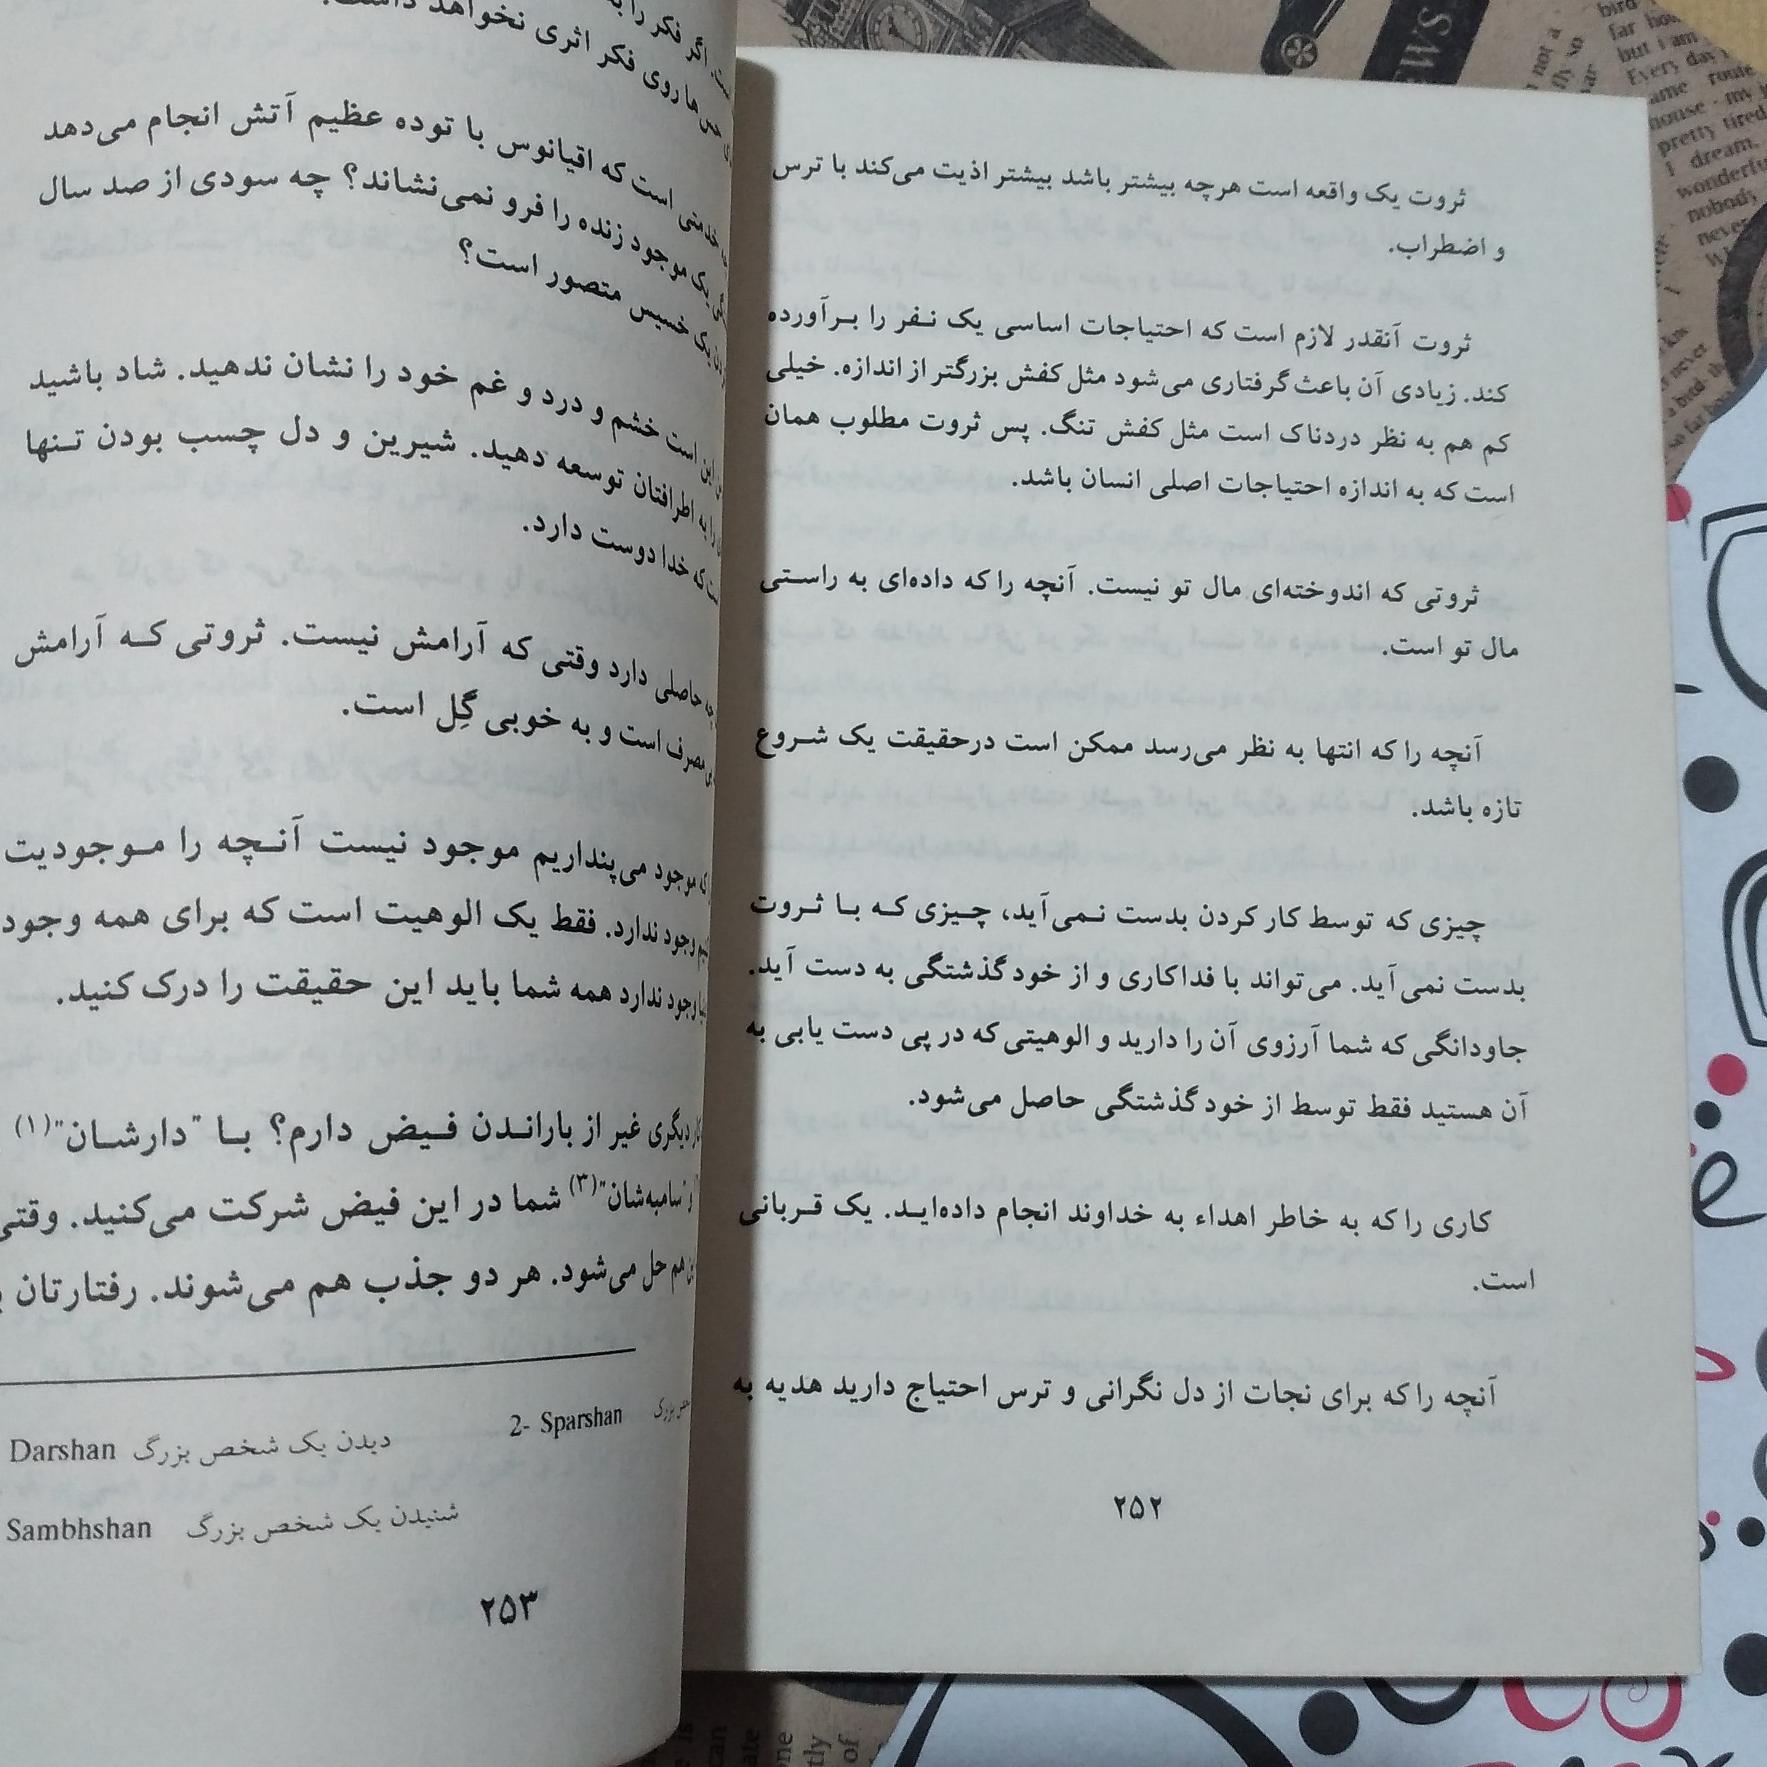 ثروت یک واقعه است هرچه بیشتر باشد بیشتر اذیت می‌کند با ترس
و اضطراب.
ثروت آنقدر لازم است که احتیاجات اساسی یک نفر را برآورده
کند. زیادی آن باعث گرفتاری می‌شود مثل کفش بزرگتر از اندازه. خیلی
کم هم به نظر دردناک است مثل کفش تنگ. پس ثروت مطلوب همان
است که به اندازه احتیاجات اصلی انسان باشد.
ثروتی که اندوخته‌ای مال تو نیست. آنچه را که داده‌ای به راستی
مال تو است.
آنچه را که انتها به نظر می‌رسد ممکن است درحقیقت یک شروع
تازه باشد.
چیزی که توسط کار کردن بدست نمی‌آید، چیزی که با ثروت
بدست نمی‌آید. می‌تواند با فداکاری و از خودگذشتگی به دست آید.
جاودانگی که شما آرزوی آن را دارید و الوهیتی که در پی دست یابی به
آن هستید فقط توسط از خودگذشتگی حاصل می‌شود.
کاری را که به خاطر اهداء به خداوند انجام داده‌اید. یک قربانی
است.
آنچه را که برای نجات از دل نگرانی و ترس احتیاج دارید هدیه به
۲۵۲
اگر فکر را به
ها روی فکر اثری نخواهد داشت.
خدمتی است که اقیانوس با توده عظیم آتش انجام می‌دهد
یک موجود زنده را فرو نمی‌نشاند؟ چه سودی از صد سال
یک خسیس متصور است؟
این است خشم و درد و غم خود را نشان ندهید. شاد باشید
را به اطرافتان توسعه دهید. شیرین و دل چسب بودن تنها
که خدا دوست دارد.
چه حاصلی دارد وقتی که آرامش نیست. ثروتی که آرامش
مصرف است و به خوبی گِل است.
که موجود می‌پنداریم موجود نیست آنچه را موجودیت
وجود ندارد. فقط یک الوهیت است که برای همه وجود
وجود ندارد همه شما باید این حقیقت را درک کنید.
کار دیگری غیر از باراندن فیض دارم؟ با "دارشان"(۱)
و "سامبه‌شان"(۳) شما در این فیض شرکت می‌کنید. وقتی
هم حل می‌شود. هر دو جذب هم می‌شوند. رفتارتان
2- Sparshan
دیدن یک شخص بزرگ Darshan
شنیدن یک شخص بزرگ Sambhshan
۲۵۳
NEWS
not a
but i am
Every day
route
house - my
pretty tired
I dream.
wonderful
nobody
never